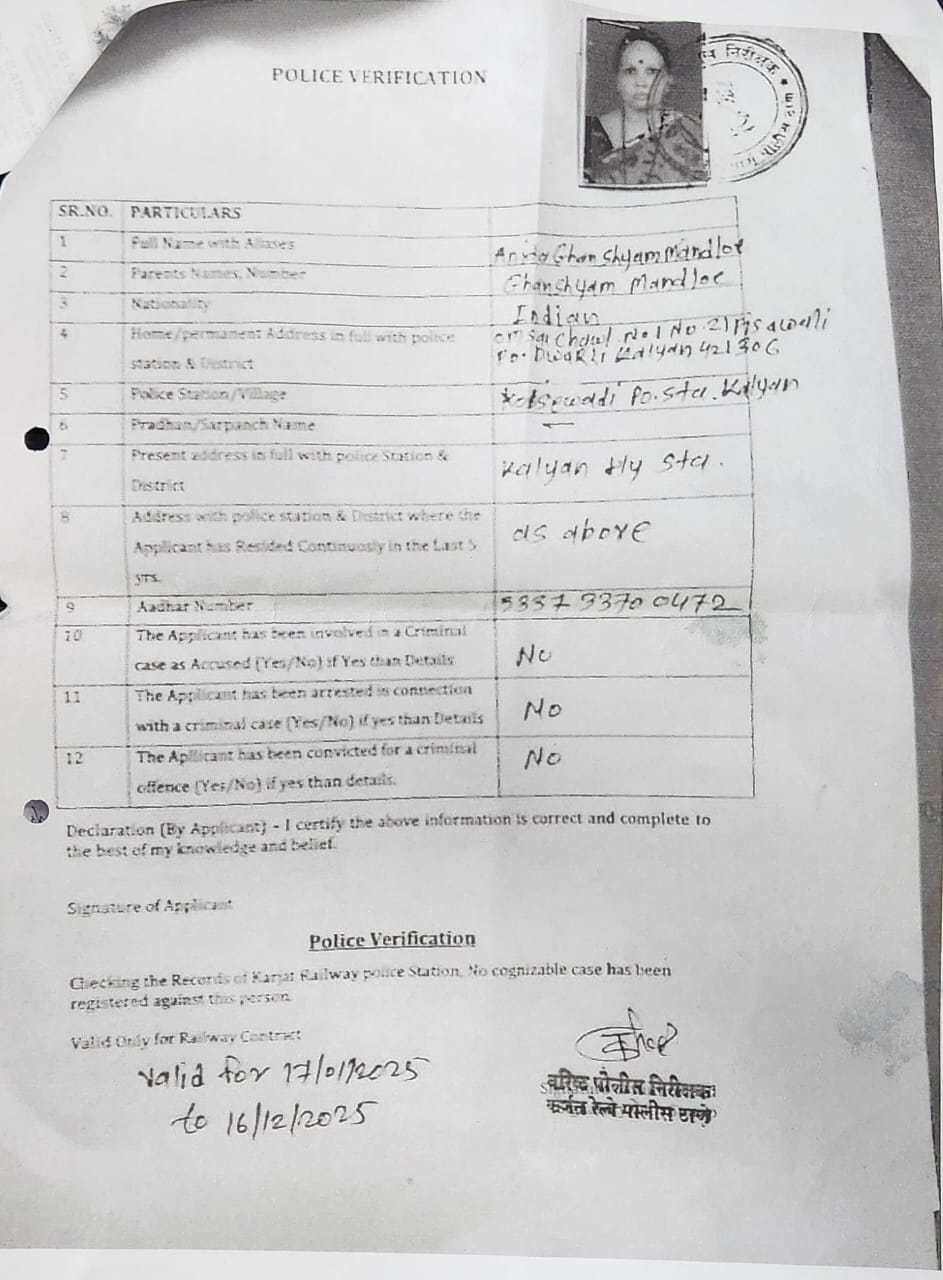 POLICE VERIFICATION
निरीक्षक
SR.NO. PARTICULARS
1 Full Name with Aliases Anita Ghan shyam Mandloe
2 Parents Names, Number Ghanshyam Mandloe
3 Nationality Indian
4 Home/permanent Address in full with police om Sai Chawl No 1 No. 21 Pisawali
station & District Po. Dwarli Kalyan 421306
5 Police Station/Village Po. Sta. Kalyan
6 Pradhan/Sarpanch Name —
7 Present address in full with police Station & Kalyan Rly Sta.
District
8 Address with police station & District where the
Applicant has Resided Continuosly in the Last 5 as above
yrs.
9 Aadhar Number 3370 0472
10 The Applicant has been involved in a Criminal
case as Accused (Yes/No) if Yes than Details No
11 The Applicant has been arrested in connection
with a criminal case (Yes/No) if yes than Details No
12 The Apllicant has been convicted for a criminal No
offence (Yes/No) if yes than details.
Declaration (By Applicant) - I certify the above information is correct and complete to
the best of my knowledge and belief.
Signature of Applicant
Police Verification
Checking the Records of Karjat Railway police Station. No cognizable case has been
registered against this person.
Valid Only for Railway Contract
valid for 17/01/2025
to 16/12/2025
वरिष्ठ पोलीस निरीक्षक
कर्जत रेल्वे पोलीस ठाणे